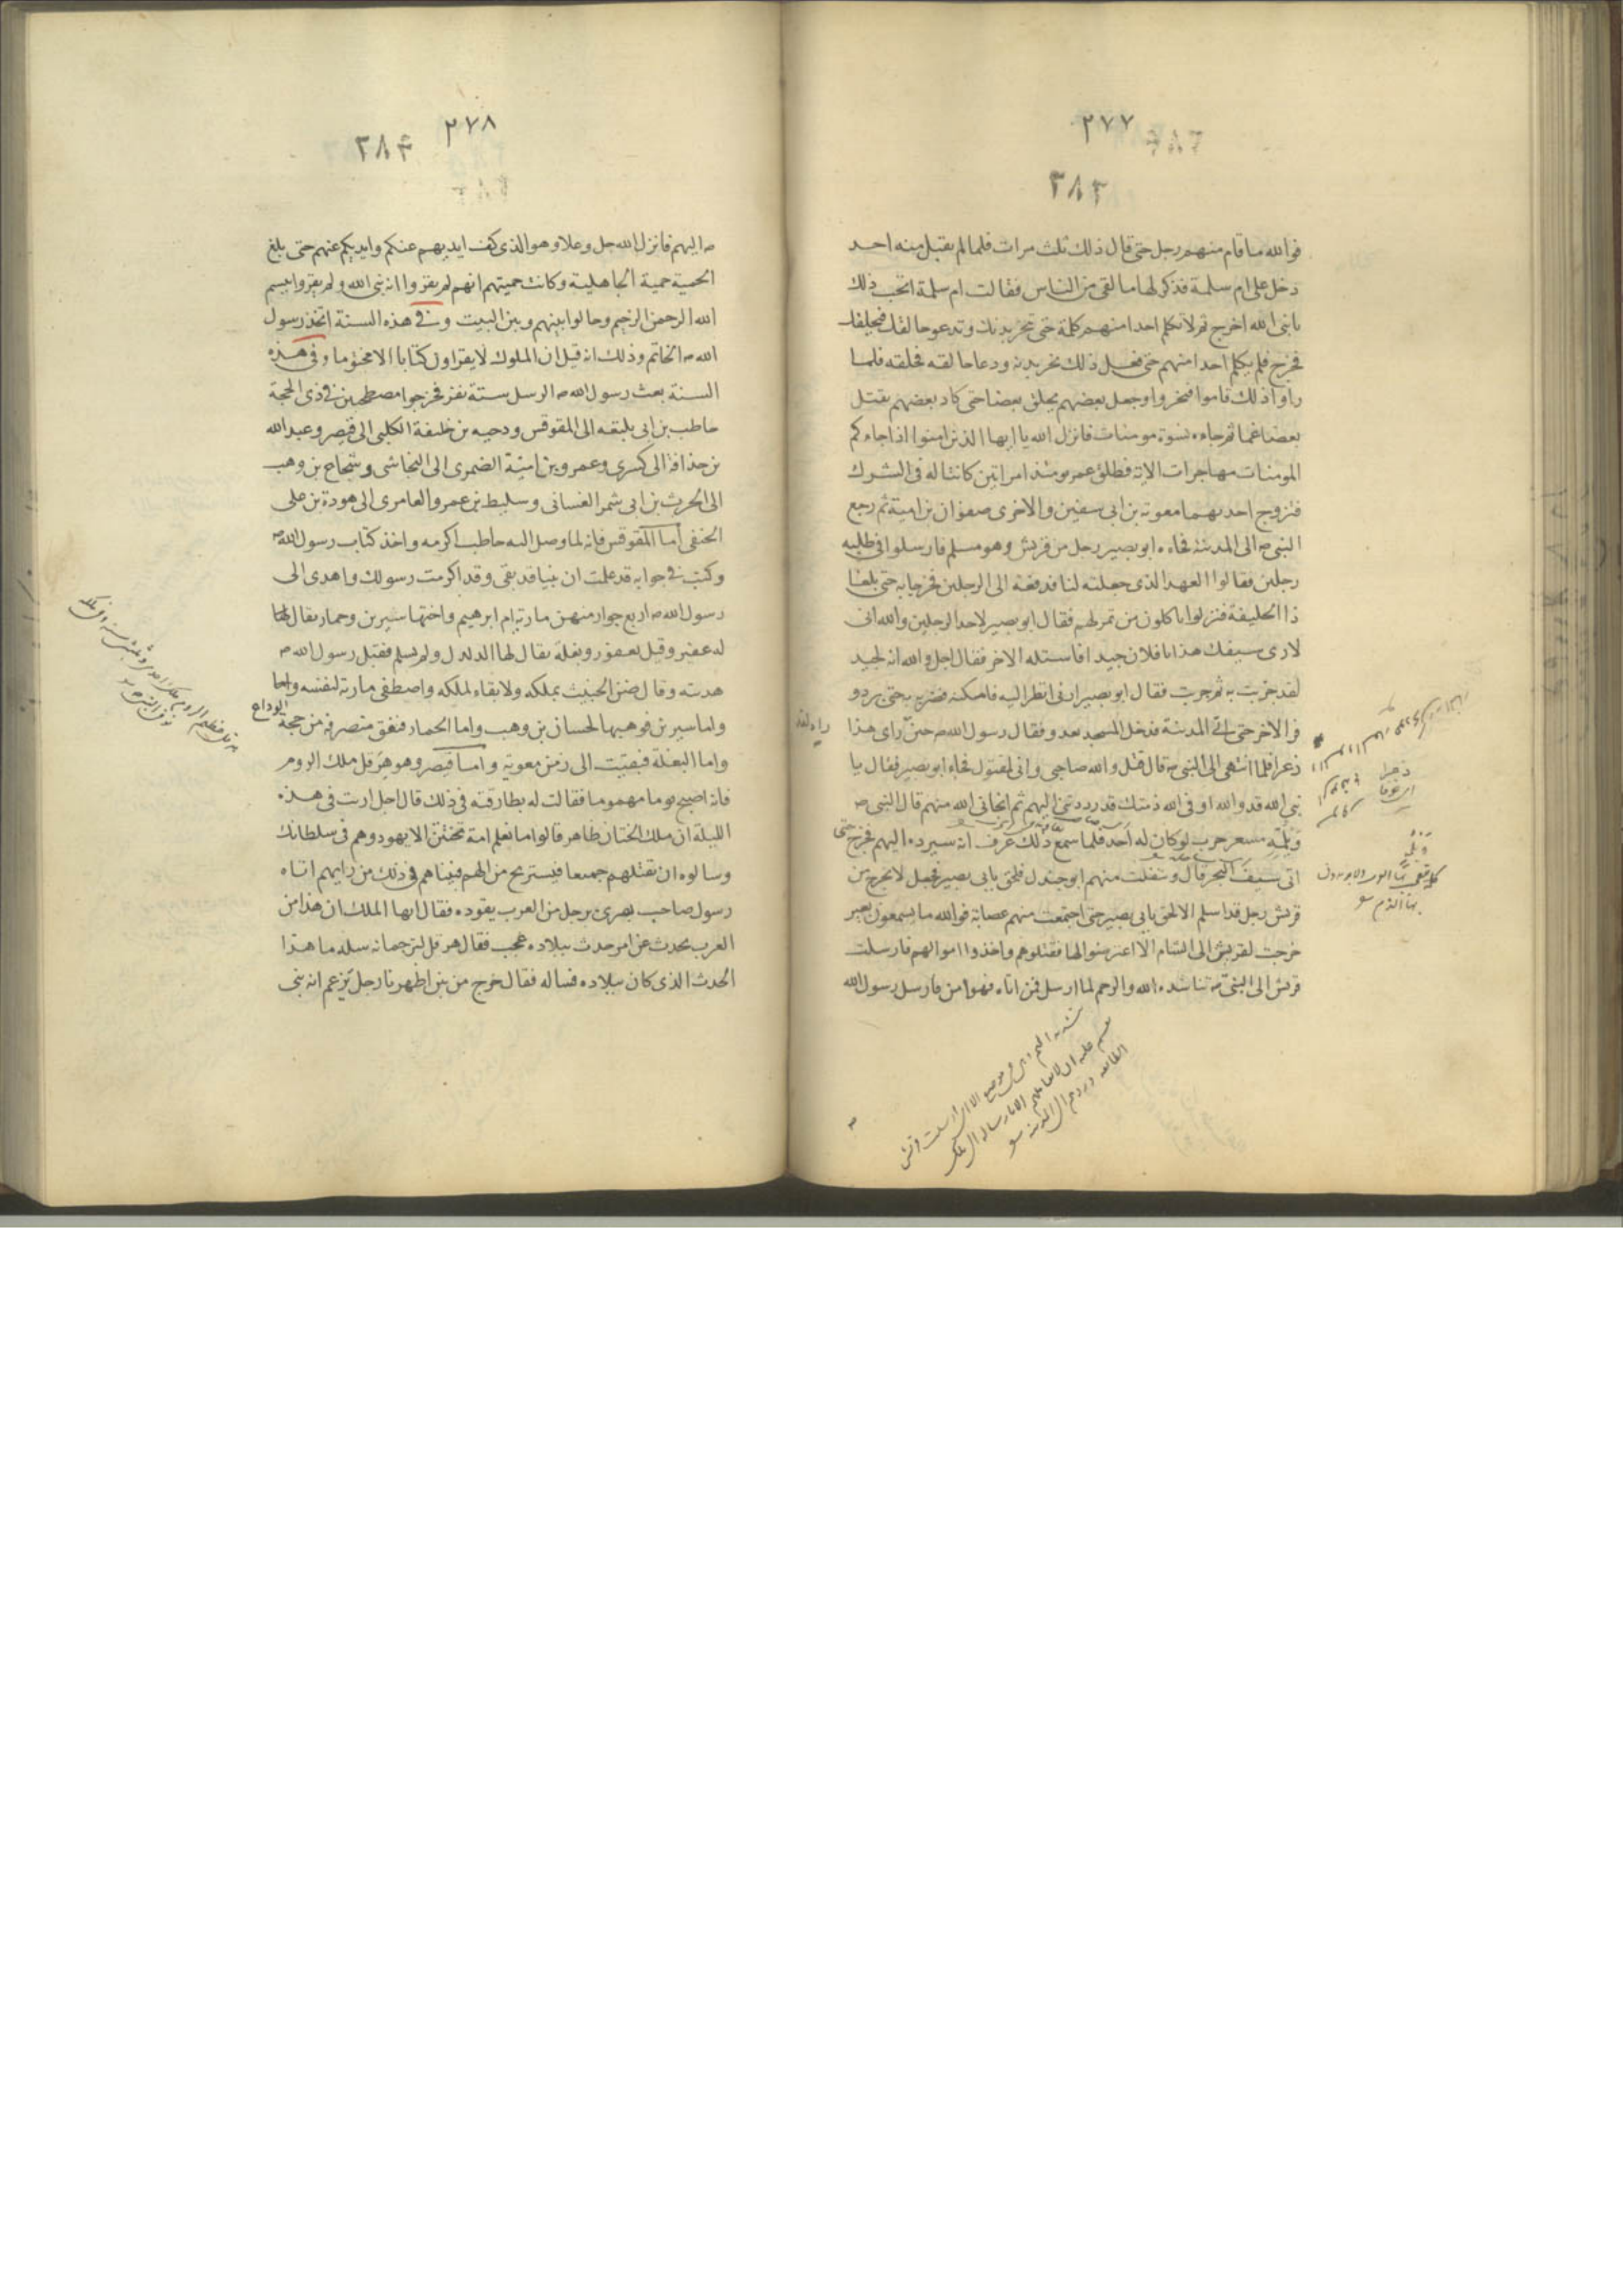 ٢٧٧
٣٨٣
فوالله ما قام منهم رجل حتى قال ذلك ثلث مرات فلما لم يقبل منه احد
دخل على ام سلمة فذكر لها ما لقى من الناس فقالت ام سلمة اتحب ذلك
يا نبى الله اخرج ثم لا تكلم احدا منهم كلمة حتى تنحر بدنك وتدعو حالقك فيحلقك
فخرج فلم يكلم احدا منهم حتى فعل ذلك نحر بدنه ودعا حالقه فحلقه فلما
راوا ذلك قاموا فنحروا وجعل بعضهم يحلق بعضا حتى كاد بعضهم يقتل
بعضا غما ثم جاءه نسوة مومنات فانزل الله يا ايها الذين امنوا اذا جاءكم
المومنات مهاجرات الاية فطلق عمر يومئذ امراتين كانتا له فى الشرك
فتزوج احديهما معوية بن ابى سفين والاخرى صفوان بن امية ثم رجع
النبى ص الى المدينة فجاءه ابو بصير رجل من قريش وهو مسلم فارسلوا فى طلبه
رجلين فقالوا العهد الذى جعلته لنا فدفعه الى الرجلين فخرجا به حتى بلغا
ذا الحليفة فنزلوا ياكلون من تمر لهم فقال ابو بصير لاحد الرجلين والله انى
لارى سيفك هذا يا فلان جيدا فاستله الاخر فقال اجل والله انه لجيد
لقد جربت به ثم جربت فقال ابو بصير ارنى انظر اليه فامكنه فضربه حتى برد و
فر الاخر حتى اتى المدينة فدخل المسجد يعدو فقال رسول الله ص حين راى هذا
ذعرا فلما انتهى الى النبى ص قال قتل والله صاجى وانى لمقتول فجاء ابو بصير فقال يا
نبى الله قد والله اوفى الله ذمتك قد رددتنى اليهم ثم انجانى الله منهم قال النبى ص
ويلمه مسعر حرب لو كان له احد فلما سمع ذلك عرف انه سيرده اليهم فخرج حتى
اتى سيف البحر قال وتفلت منهم ابو جندل فلحق بابى بصير فجعل لا يخرج من
قريش رجل قد اسلم الا لحق بابى بصير حتى اجتمعت منهم عصابة فوالله ما يسمعون بعير
خرجت لقريش الى الشام الا اعترضوا لها فقتلوهم واخذوا اموالهم فارسلت
قريش الى النبى ص تناشده الله والرحم لما ارسل فمن اتاه فهو امن فارسل رسول الله
٢٧٨
٣٨٤
ص اليهم فانزل الله جل وعلا وهو الذى كف ايديهم عنكم وايديكم عنهم حتى بلغ
الحمية حمية الجاهلية وكانت حميتهم انهم لم يقروا انه نبى الله ولم يقروا ببسم
الله الرحمن الرحيم وحالوا بينهم وبين البيت وفى هذه السنة اتخذ رسول
الله ص الخاتم وذلك انه قيل ان الملوك لا يقراون كتابا الا مختوما وفى هذه
السنة بعث رسول الله ص الرسل ستة نفر فخرجوا مصطحبين فى ذى الحجة
حاطب بن ابى بلتعة الى المقوقس ودحيه بن خليفة الكلبى الى قيصر وعبد الله
بن حذافة الى كسرى وعمرو بن امية الضمرى الى النجاشى وشجاع بن وهب
الى الحرث بن ابى شمر الغسانى وسليط بن عمرو العامرى الى هوذة بن على
الحنفى اما المقوقس فانه لما وصل اليه حاطب اكرمه واخذ كتاب رسول الله ص
وكتب فى جوابه قد علمت ان نبيا قد بقى وقد اكرمت رسولك واهدى الى
رسول الله ص اربع جوار منهن مارية ام ابرهيم واختها سيرين وحمار يقال لها
له عفير وقيل يعفور وبغلة يقال لها الدلدل ولم يسلم فقبل رسول الله ص
هديته وقال ضن الخبيث بملكه ولا بقاء لملكه واصطفى مارية لنفسه واما
واما سيرين فوهبها لحسان بن وهب واما الحمار فنفق منصرفه من حجة الوداع
واما البغلة فبقيت الى زمن معوية واما قيصر وهو هرقل ملك الروم
فانه اصبح يوما مهموما فقالت له بطارقته فى ذلك قال اجل اريت فى هذه
الليلة ان ملك الختان ظاهر قالوا ما نعلم امة تختتن الا يهود وهم فى سلطانك
وسالوه ان تقتلهم جميعا فيستريح من الهم فبيناهم فى ذلك من رايهم اتاه
رسول صاحب بصرى برجل من العرب يقوده فقال ايها الملك ان هذا من
العرب يحدث عن امر حدث ببلاده عجب فقال هرقل لترجمانه سله ما هذا
الحدث الذى كان ببلاده فساله فقال خرج من بين اظهرنا رجل يزعم انه نبى